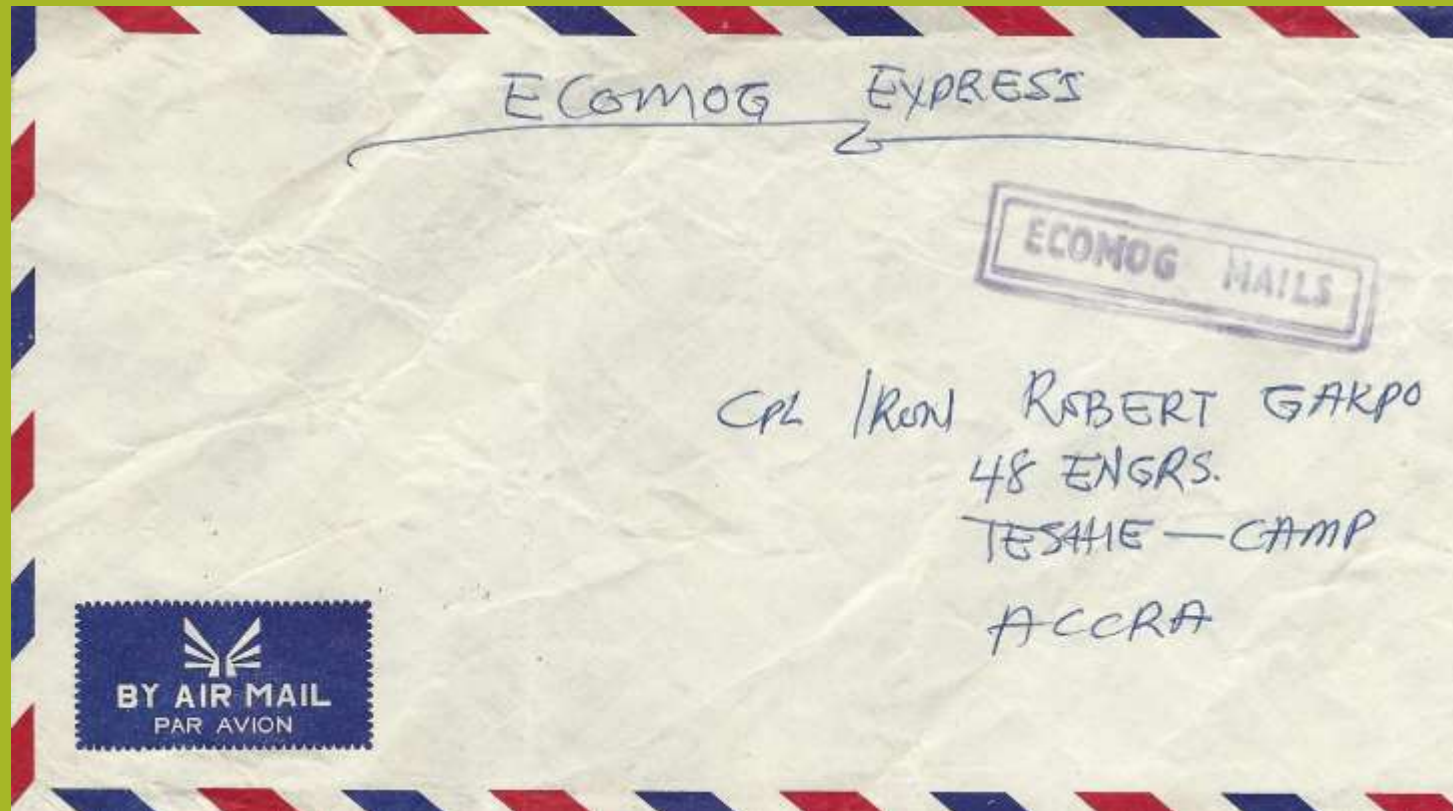 ECOMOG EXPRESS
ECOMOG MAILS
CPL IRON ROBERT GAKPO
48 ENGRS.
TESHIE — CAMP
ACCRA
BY AIR MAIL
PAR AVION